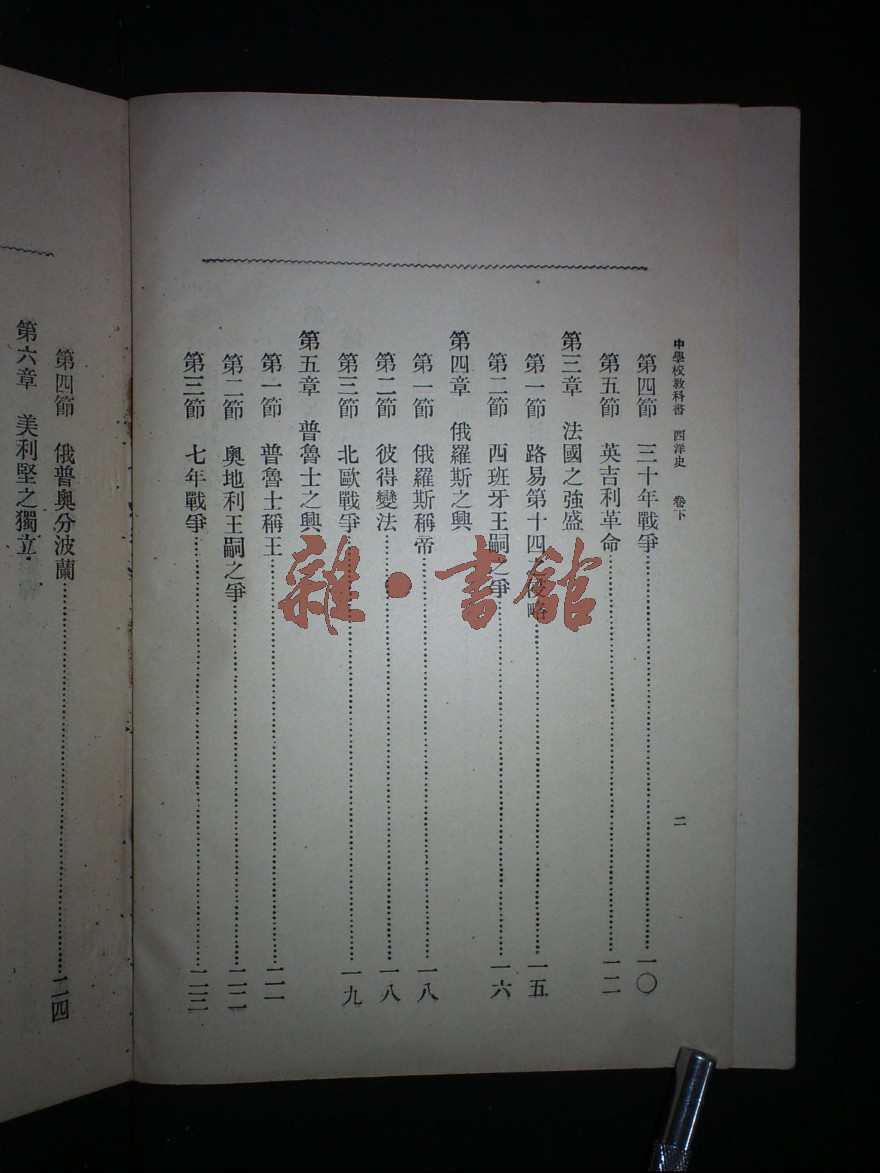 中學校教科書　西洋史　卷下　二
第四節　三十年戰爭……一〇
第五節　英吉利革命……一二
第三章　法國之強盛
第一節　路易第十四之侵略……一五
第二節　西班牙王嗣之爭……一六
第四章　俄羅斯之興
第一節　俄羅斯稱帝……一八
第二節　彼得變法……一八
第三節　北歐戰爭……一九
第五章　普魯士之興
第一節　普魯士稱王……二一
第二節　奧地利王嗣之爭……二二
第三節　七年戰爭……二三
第四節　俄普奧分波蘭……二四
第六章　美利堅之獨立
雜·書館